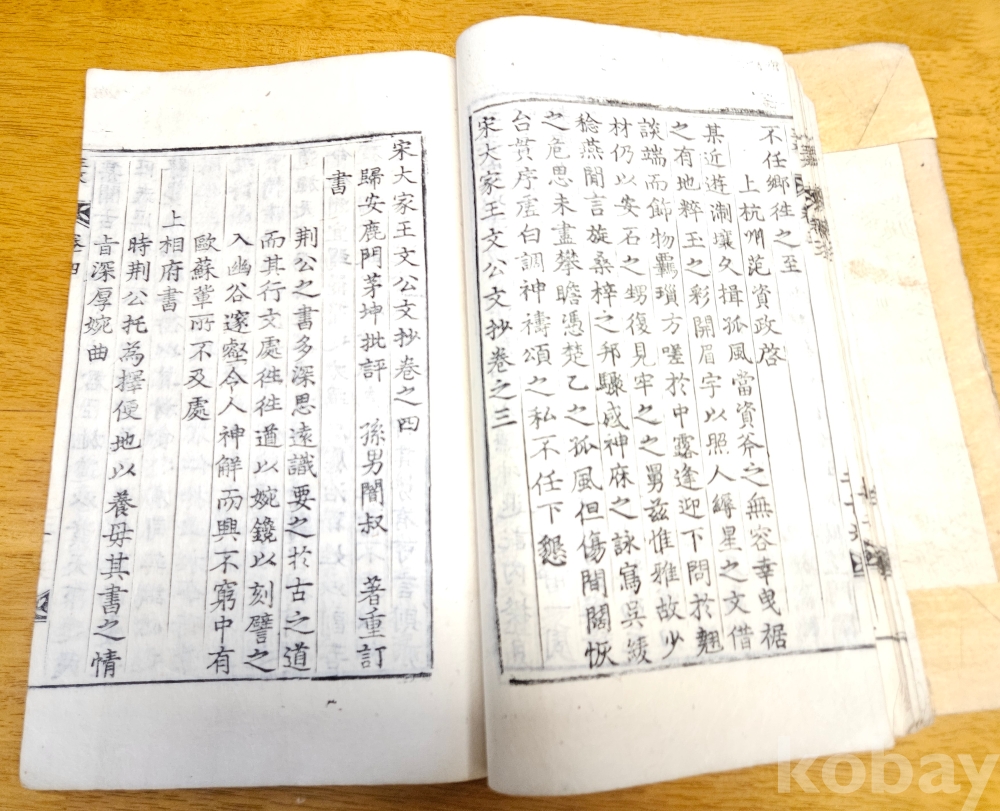 不任鄉徃之至
上杭州范資政啓
某近遊淛壤久揖孤風當資斧之無容幸曳裾
之有地粹玉之彩開眉宇以照人縟星之文借
談端而飾物羈瑣方嗟於中露逢迎下問於翹
材仍以安石之甥復見牢之之舅茲惟雅故少
稔燕閒言旋桑梓之邦驟感神麻之詠寫吳綾
之危思未盡攀瞻憑楚乙之孤風但傷間闊恢
台貫序虛白調神禱頌之私不任下懇
宋大家王文公文抄卷之三
宋大家王文公文抄卷之四
歸安鹿門茅坤批評 孫男闇叔 著重訂
書
荆公之書多深思遠識要之於古之道
而其行文處徃徃遒以婉鐫以刻譬之
入幽谷邃壑令人神解而興不窮中有
歐蘇軰所不及處
上相府書
時荆公托為擇便地以養母其書之情
旨深厚婉曲
卷四
kobay